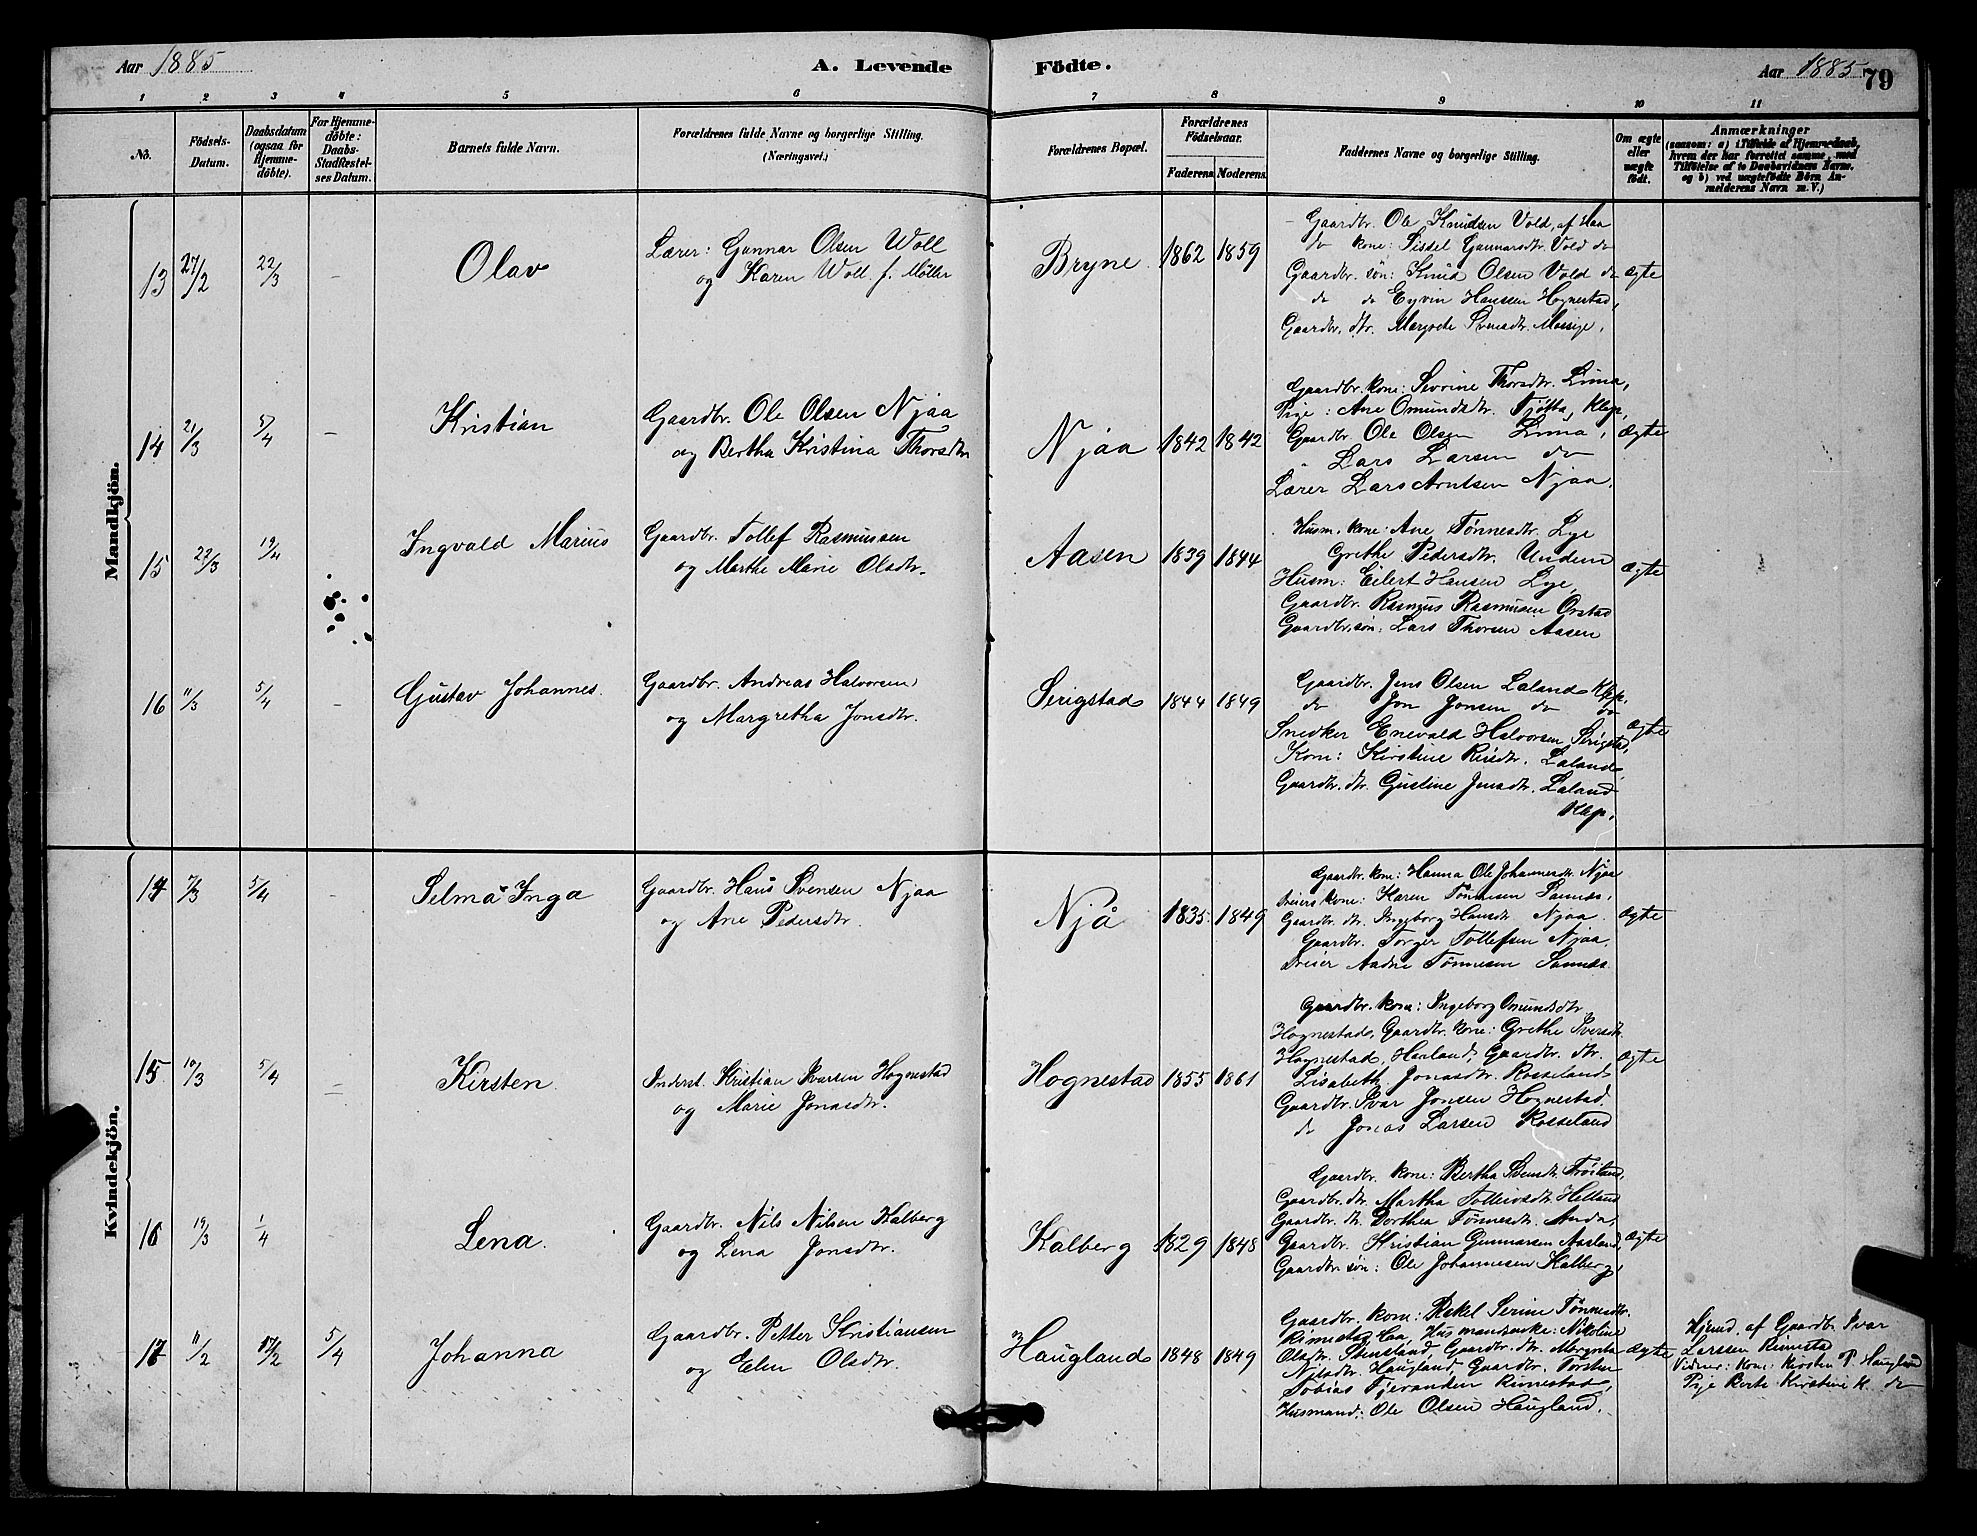 Aar 1885
A. Levende Födte.
Aar 1885
79
1 2 3 4 5 6 7 8 9 10 11
No.
Födsels-Datum.
Daabsdatum (ogsaa for Hjemme-döbte).
For Hjemme-döbte: Daabs-Stadfæstel-ses Datum.
Barnets fulde Navn.
Forældrenes fulde Navne og borgerlige Stilling. (Næringsvei.)
Forældrenes Bopæl.
Forældrenes Födselsaar.
Faderens. Moderens.
Faddernes Navne og borgerlige Stilling.
Om ægte eller uægte födt.
Anmærkninger
(saasom: a) i Tilfælde af Hjemmedaab, hvem der har forrettet samme, med Tilföielse af to Daabsvidners Navne, og b) ved uægtefödte Börn An-melderens Navn m. V.)
Mandkjön.
13 27/2 22/3 – Olav
Lærer: Gunnar Olsen Woll
og Karen Woll f. Möller
Bryne 1862 1859
Gaardbr. Ole Knudsen Vold af Haa
do kone: Sissel Gunnarsdtr. Vold do
Gaardbr. sön: Knud Olsen Vold do
do do Eyvin Hanssen Hognestad,
Gaardbr. dtr. Margrete Svensdtr. Mossige.
ægte
14 21/3 5/4 – Kristian
Gaardbr. Ole Olsen Njaa
og Bertha Kristina Thorsdtr
Njaa 1842 1842
Gaardbr. kone: Sevrine Thorsdtr. Lima,
Pige: Ane Omundsdtr. Tjøtta, Klep,
Gaardbr Ole Olsen Lima,
" Lars Larsen do
Lærer Lars Arntsen Njaa.
ægte
15 22/3 19/4 Ingvald Marius
Gaardbr. Tollef Rasmussen
og Marthe Marie Olsdtr.
Aasen 1839 1844
Husm. kone: Ane Tönnesdtr. Lye
Grethe Pedersdtr. Undem
Husm: Eilert Hansen Lye,
Gaardbr. Rasmus Rasmusen Orstad
Gaardbr. sön: Lars Thorsen Aasen
ægte
16 11/3 5/4 – Gustav Johannes.
Gaardbr. Andreas Halvorsen
og Margretha Jonsdtr.
Serigstad 1844 1849
Gaardbr. Jens Olsen Laland Klep,
do Jon Jonsen do do
Snedker Enevald Halvorsen Serigstad,
Kone: Kirstine Lalands
Gaardbr. dtr. Gustine Jensdtr. Laland
Klep.
ægte
Kvindekjön.
14 7/3 5/4 – Selma Inga
Gaardbr. Hans Svensen Njaa
og Ane Pedersdtr.
Njå 1835 1849
Gaardbr. kone: Hanna Ole Johannesdtr. Njaa
Dreiers kone: Karen Tönnesen Sannes,
Gaardbr. dtr. Ingeborg Hansdtr. Njaa.
Gaardbr. Torger Tollefsen Njaa,
Dreier Aadne Tönnesen Sannes.
ægte
15 10/3 5/4 – Kirsten.
Inderst. Kristian Ivarsen Hognestad
og Marie Jonasdtr.
Hognestad 1855 1861
Gaardbr. kone: Ingeborg Omundsdtr
Hognestad, Gaardbr. kone: Grethe Iversdtr.
Hognestad, Hanland, Gaardbr. dtr.
Lisabeth Jonasdtr. Rosseland
Gaardbr. Ivar Jonsen Hognestad,
do Jonas Larsen Rosseland
ægte
16 19/3 1/4 Lena.
Gaardbr. Nils Nilsen Kalberg
og Lena Jonsdtr.
Kalberg 1829 1848
Gaardbr. kone: Bertha Svensdtr. Fröiland,
Gaardbr. dtr. Martha Tolleivsdtr. Helland
Gaardbr. dtr. Dorthea Tönnesdtr. Anda,
Gaardbr. Kristian Gunnarsen Aasland,
Gaardbr. sön: Ole Johannesen Kalberg,
ægte
17 11/2 17/2 5/4 Johanna
Gaardbr. Petter Kristiansen
og Elen Olsdtr.
Haugland 1848 1849
Gaardbr. kone: Rakel Serine Tönnesdtr.
Rimestad Haa, Husmandsenke: Nikoline
Olsdtr. Stensland, Gaardbr. dtr. Mergrete
Nilsdtr. Haugland, Gaardbr. Torsten
Tobias Tjeransen Rimestad,
Husmand: Ole Olsen Haugland.
ægte
Hjemd. af Gaardbr Ivar
Larssen Rimestad
Vidner: Kone: Kirsten P. Haugland
Pige Berte Kirstine K. do